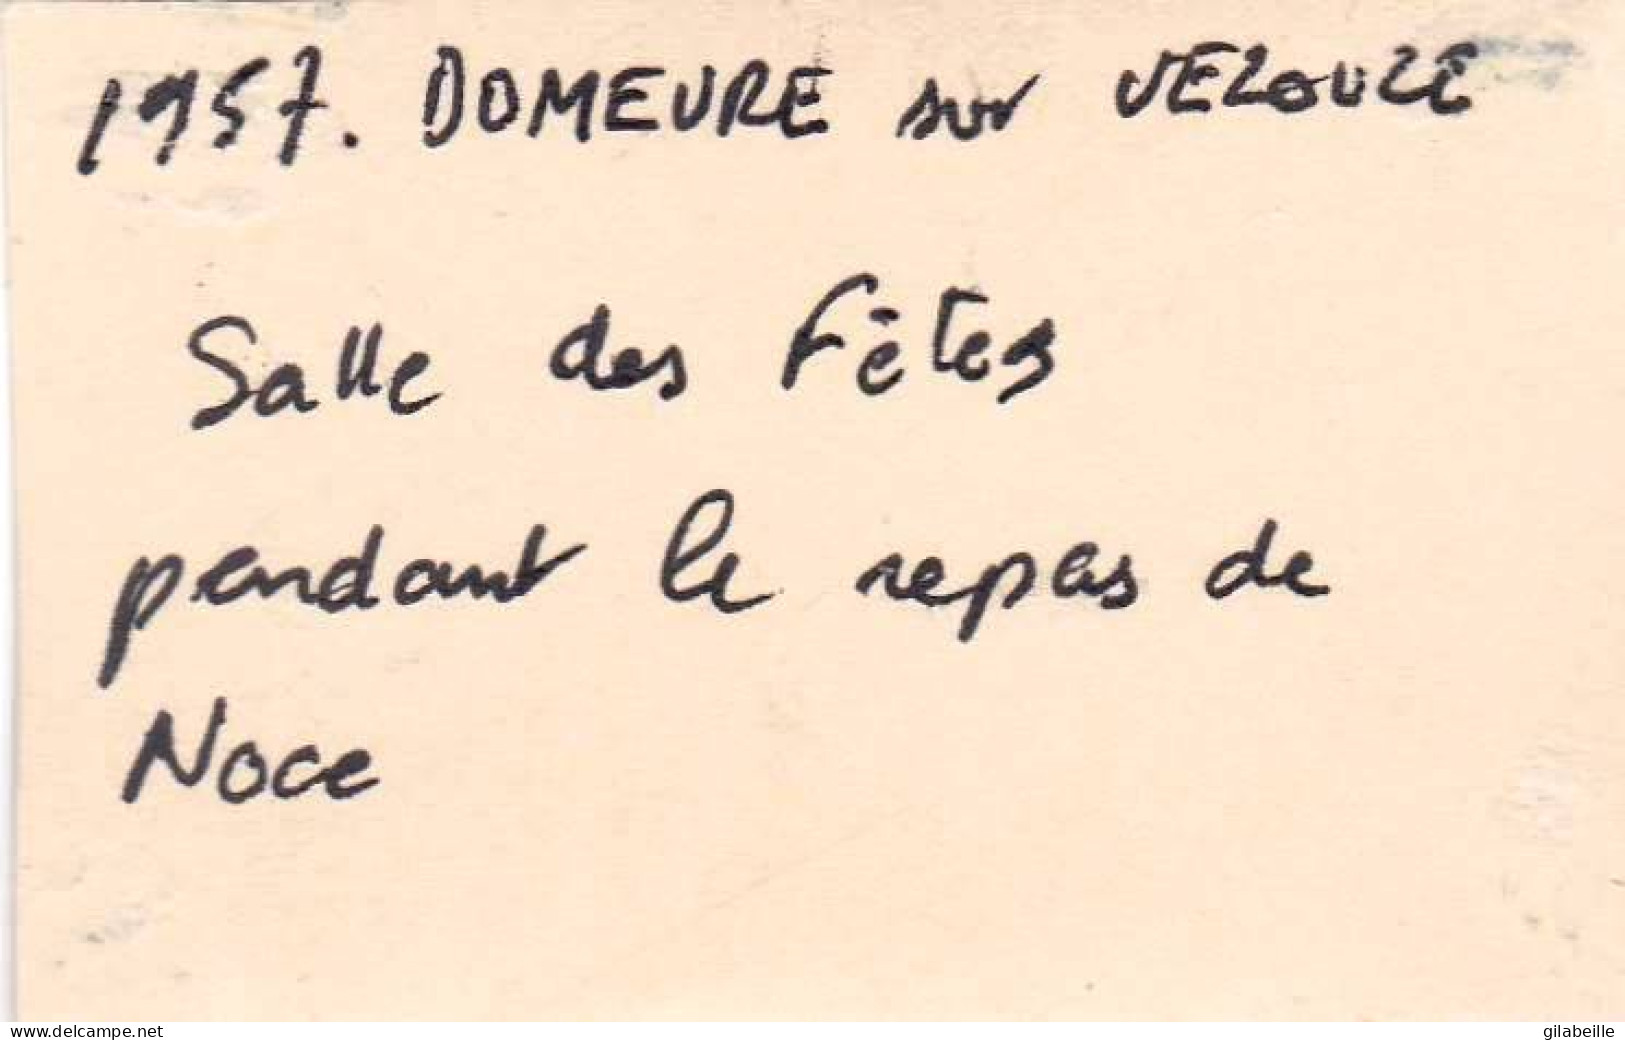 1957. DOMEVRE sur VEZOUZE
Salle des Fêtes
pendant le repas de
Noce
www.delcampe.net
gilabeille